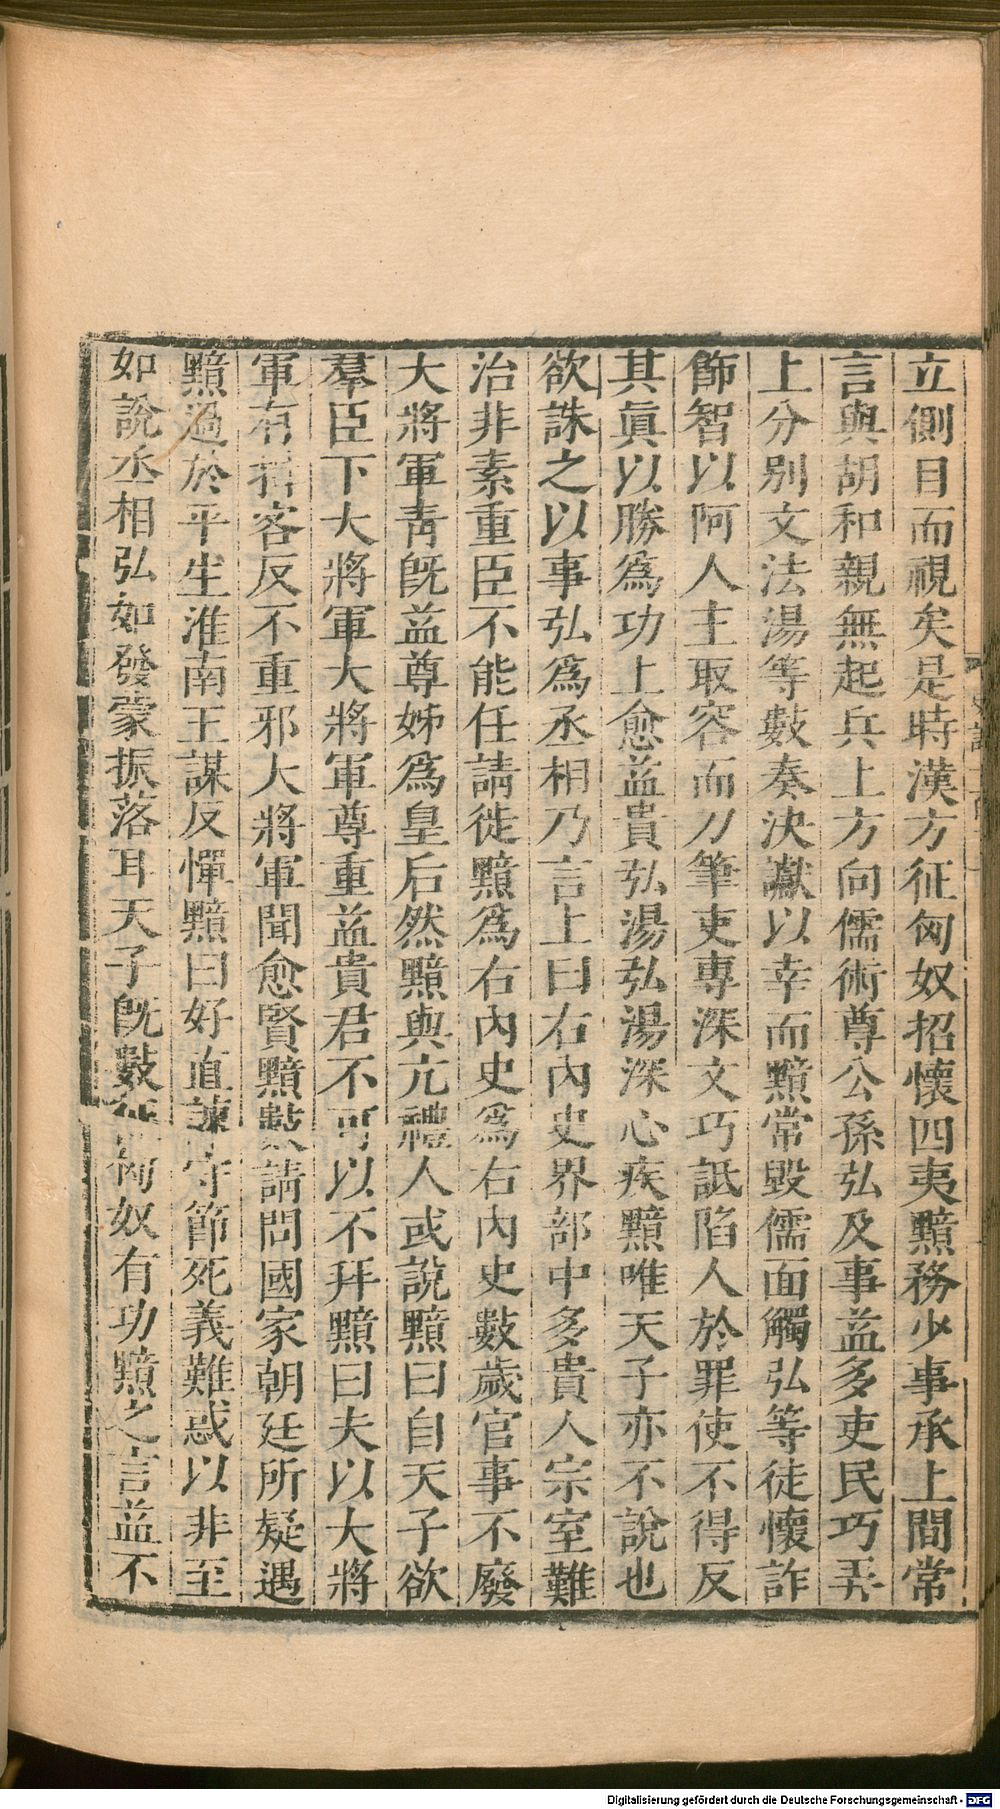 立側目而視矣是時漢方征匈奴招懷四夷黯務少事承上間常
言與胡和親無起兵上方向儒術尊公孫弘及事益多吏民巧弄
上分别文法湯等數奏決讞以幸而黯常毀儒面觸弘等徒懷詐
飾智以阿人主取容而刀筆吏專深文巧詆陷人於罪使不得反
其眞以勝爲功上愈益貴弘湯弘湯深心疾黯唯天子亦不說也
欲誅之以事弘爲丞相乃言上曰右内史界部中多貴人宗室難
治非素重臣不能任請徙黯爲右内史爲右内史數歲官事不廢
大將軍靑旣益尊姊爲皇后然黯與亢禮人或說黯曰自天子欲
羣臣下大將軍大將軍尊重益貴君不可以不拜黯曰夫以大將
軍有揖客反不重邪大將軍聞愈賢黯數請問國家朝廷所疑遇
黯過於平生淮南王謀反憚黯曰好直諫守節死義難惑以非至
如說丞相弘如發蒙振落耳天子旣數征匈奴有功黯之言益不
Digitalisierung gefördert durch die Deutsche Forschungsgemeinschaft - DFG